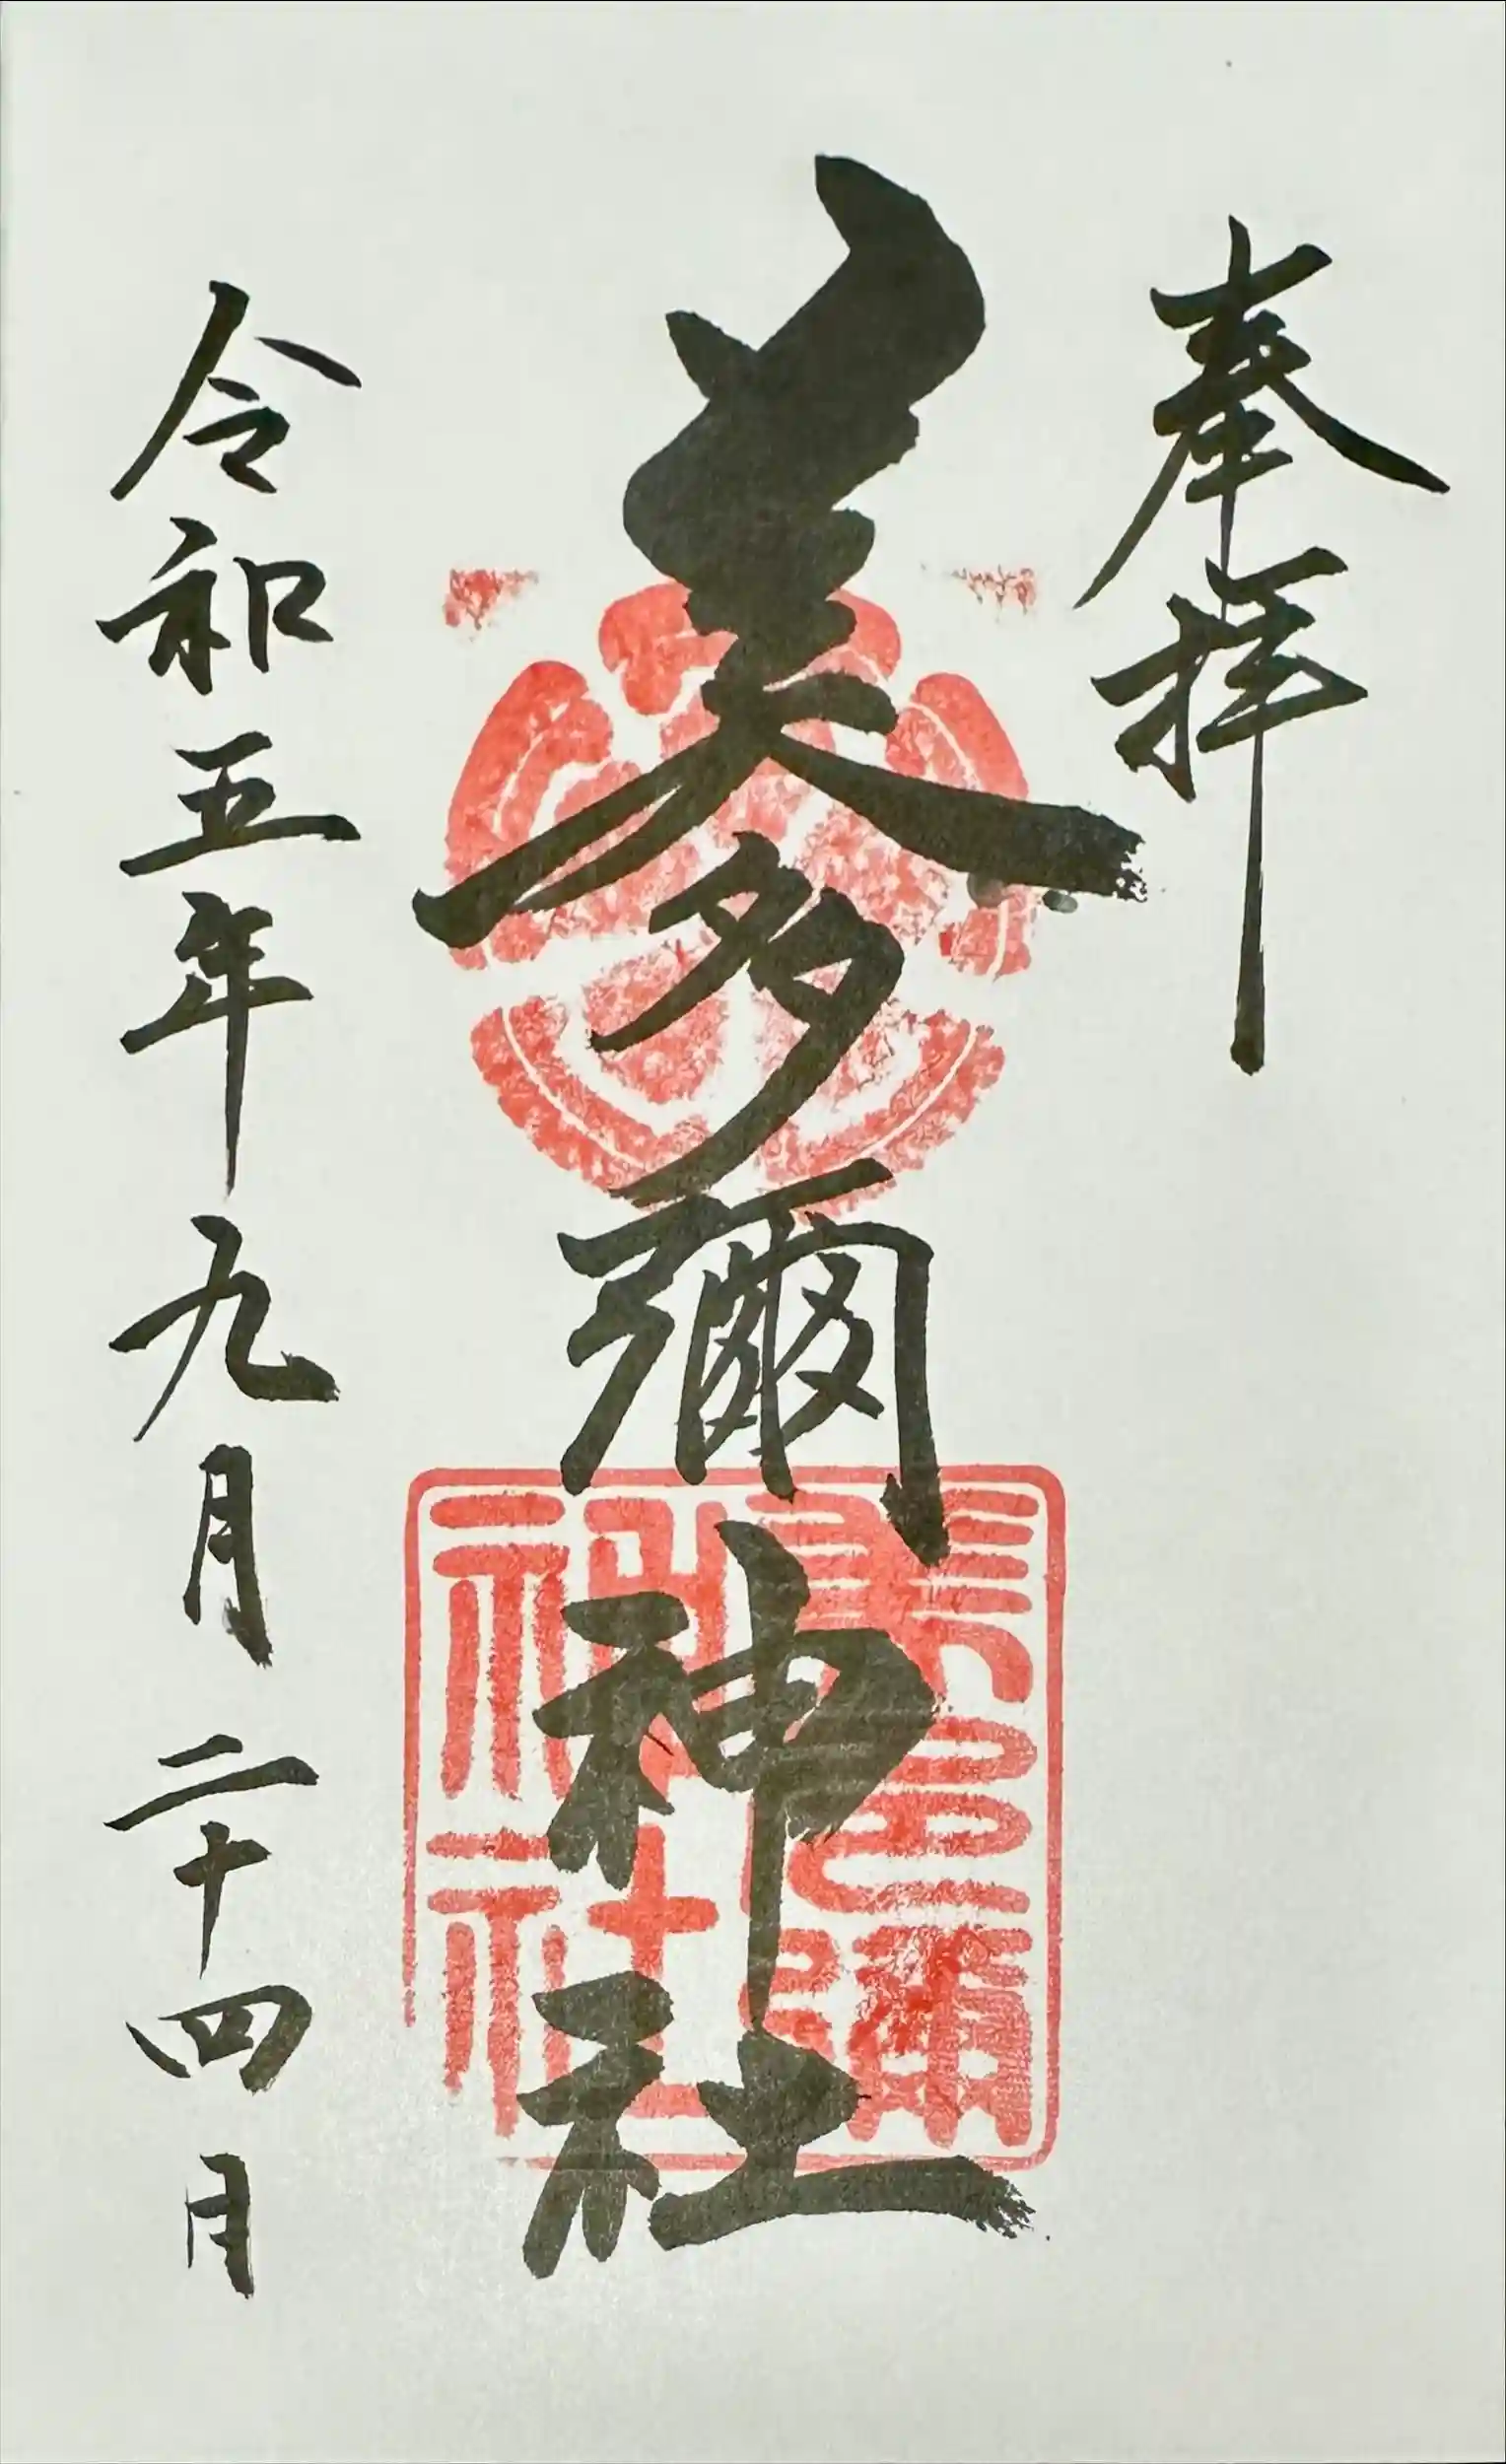 奉拝
美多彌神社
令和五年九月二十四日
美多彌
神社